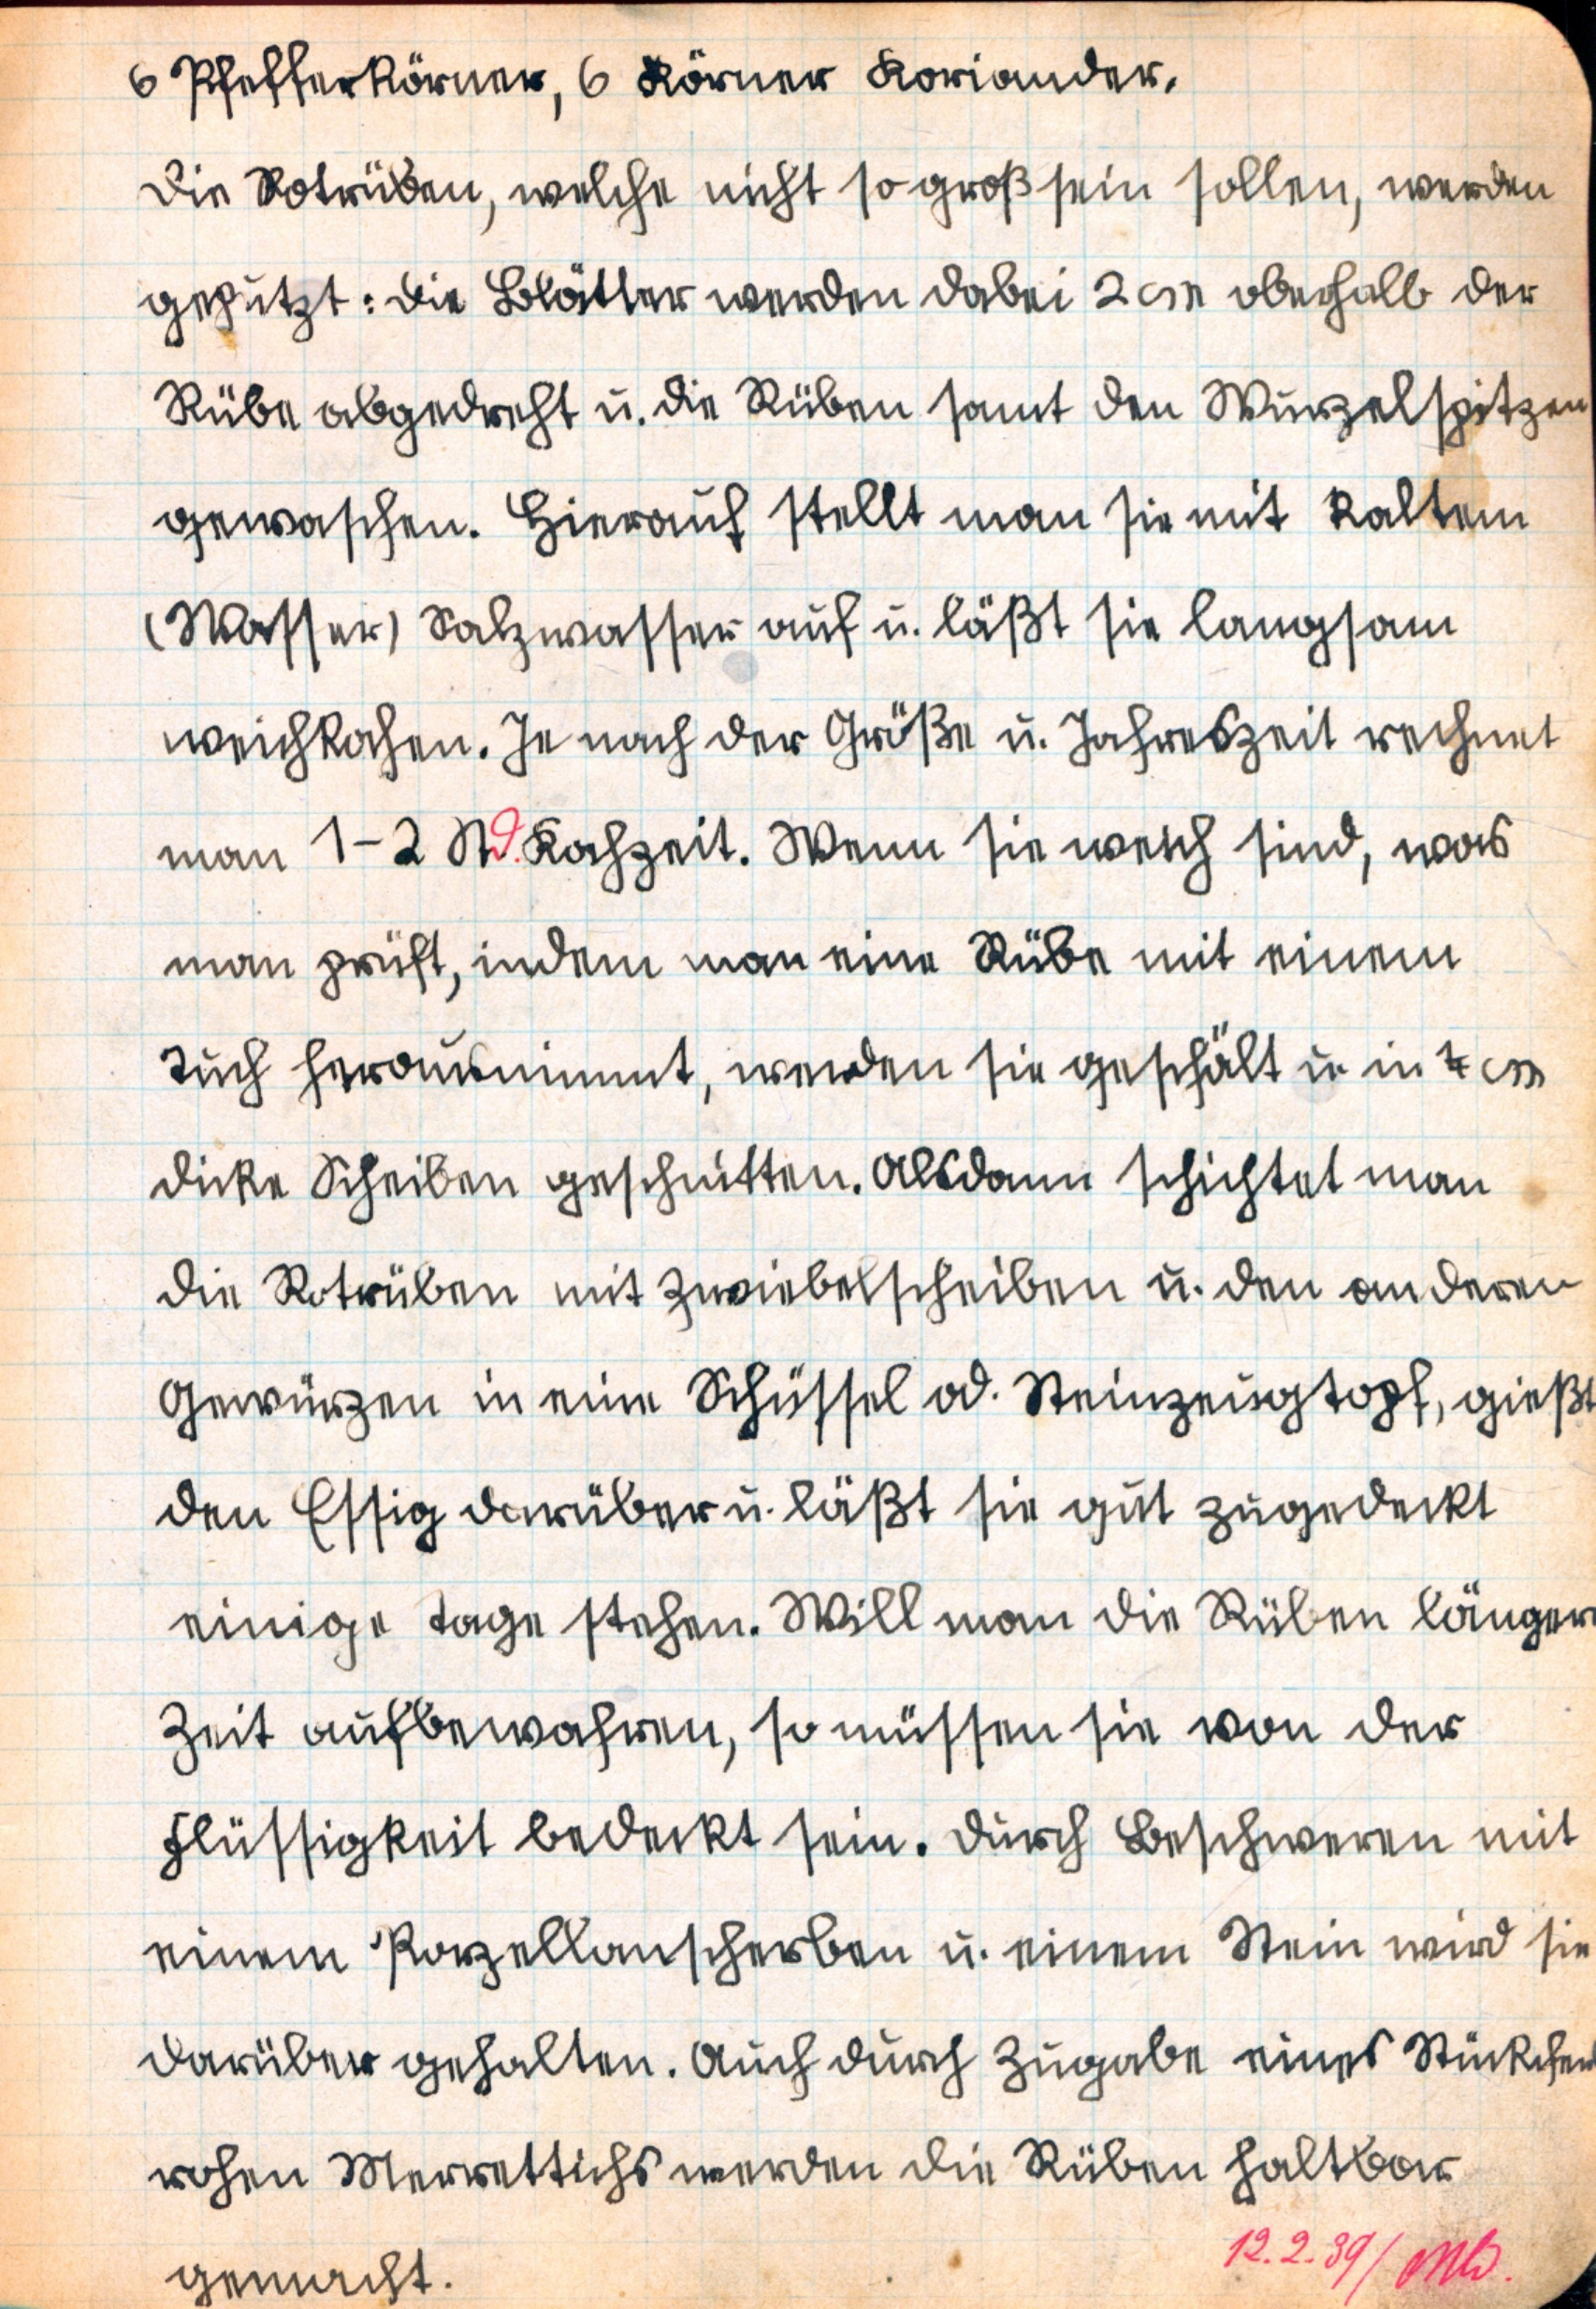 6 Pfefferkörner, 6 Körner Koriander.
Die Rotrüben, welche nicht so groß sein sollen, werden
geputzt: die Blätter werden dabei 2 cm oberhalb der
Rübe abgedreht u. die Rüben samt den Wurzelspitzen
gewaschen. Hierauf stellt man sie mit kaltem
(Wasser) Salzwasser auf u. läßt sie langsam
weichkochen. Je nach der Größe u. Jahreszeit rechnet
man 1-2 Std. Kochzeit. Wenn sie weich sind, was
man prüft, indem man eine Rübe mit einem
Tuch herausnimmt, werden sie geschält u in cm
dicke Scheiben geschnitten. Alsdann schichtet man
die Rotrüben mit Zwiebelscheiben u. den anderen
Gewürzen in eine Schüssel od. Steinzeugtopf, gießt
den Essig darüber u. läßt sie gut zugedeckt
einige Tage stehen. Will man die Rüben längere
Zeit aufbewahren, so müssen sie von der
Flüssigkeit bedeckt sein. Durch Beschweren mit
einem Porzellanscherben u. einem Stein wird sie
darüber gehalten. Auch durch Zugabe eines Stückchen
rohen Merrettichs werden die Rüben haltbar
gemacht.
12.2.39/